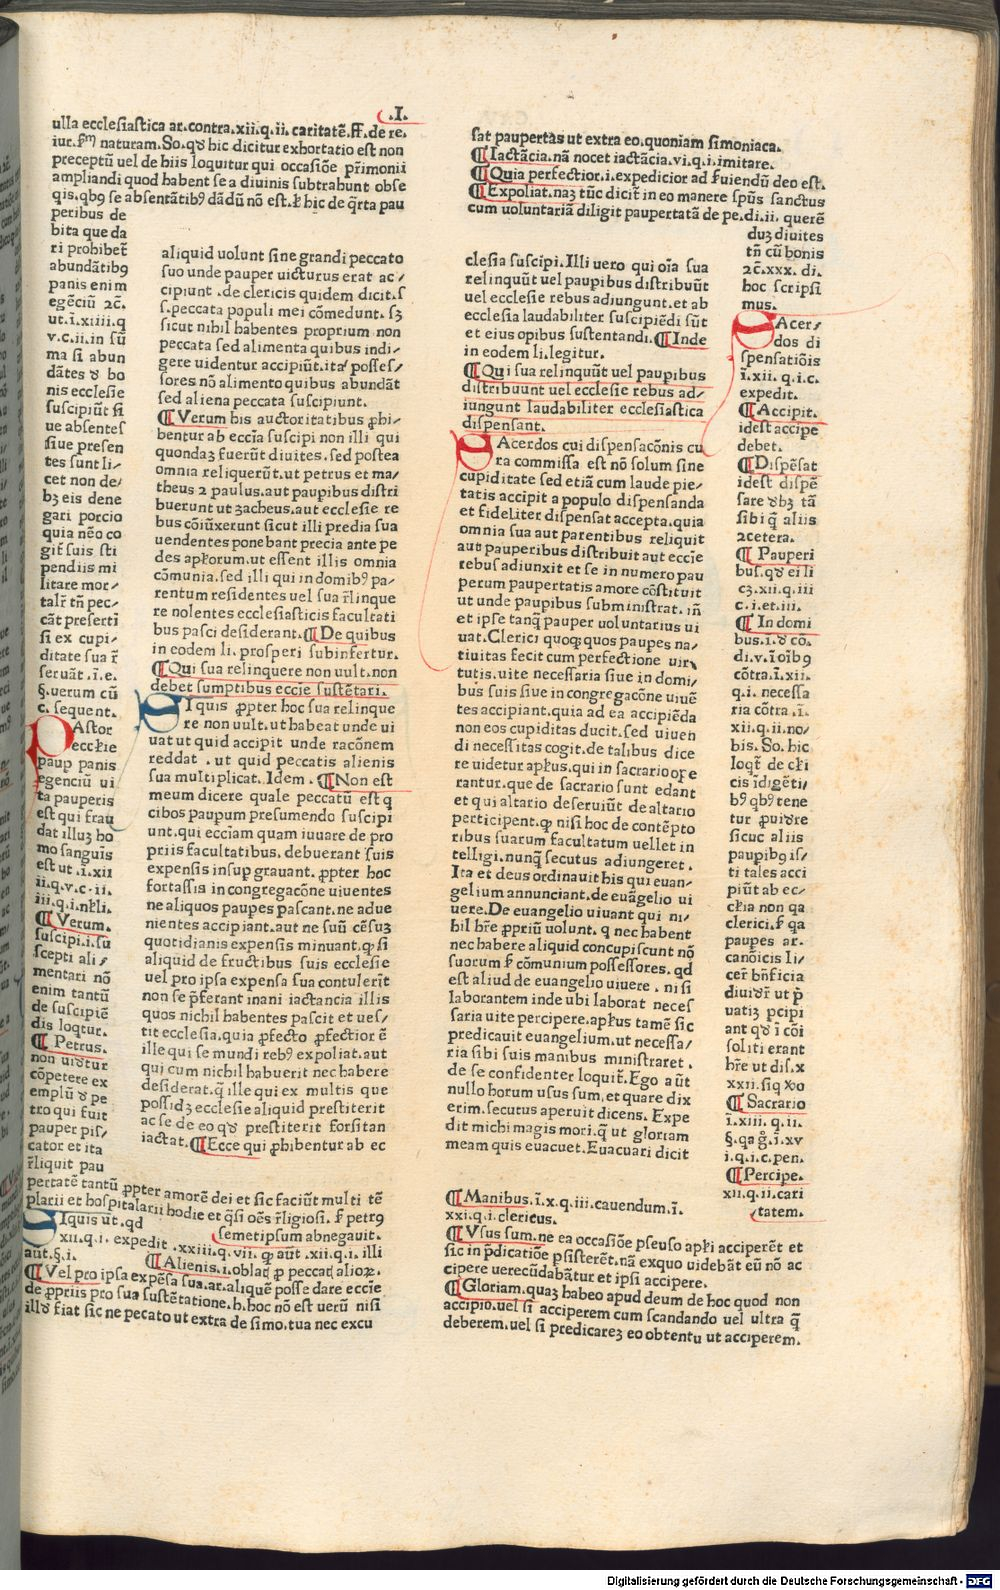 .I.
ulla ecclesiastica ar.contra.xii.q.ii.caritatē.ff.de re,
iur.ẜm naturam.So.qđ hic dicitur exhortatio est non
preceptū uel de hiis loquitur qui occasiōe pṙimonii
ampliandi quod habent se a diuinis subtrahunt obse
qis.qbꝰ se absentātibꝰ dādū nō est.ẜ hic de q̄rta pau
peribus de
bita que da
ri prohibet̄
abundātibꝰ
panis enim
egēciū ⁊c̄.
ut.ī.xiiii.q
v.c.ii.in sū
ma si abun
dātes đ bo
nis ecclesie
suscipiūt si
ue absentes
siue presen
tes sunt li,
cet non de,
bꝫ eis dene
gari porcio
quia nēo co
git̄ suis sti
pendiis mi
litare mor,
talr̄ tn̄ pec,
cāt preserti
si ex cupi,
ditate sua r̄
seruāt.ī.e.
§.uerum cū
c. sequent.
PAstor
eccłie
paup panis
egenciū ui
ta pauperis
est qui frau
dat illuꝫ ho
mo sanguīs
est ut.ī.xii
ii.q.v.c.ii.
iii.q.i.nłli.
¶ Verum.
suscipi.i.su
scepti ali,
mentari nō
enim tantū
de suscipiē
dis loqtur.
¶ Petrus.
non uiđtur
cōpetere ex
emplū đ pe
tro qui fuit
pauper pis,
cator et ita
r̄liquit pau
pertatē tantū ꝓpter amorē dei et sic faciūt multi tē
plarii et hospitalarii hodie et q̄si oēs r̄ligiosi. ẜ petrꝰ
SIquis ut.qd semetipsum abnegauit.
xii.q.i. expedit .xxiii.q.vii. ꝙ aūt .xii.q.i. illi
aut.§.i. ¶ Alienis.i.oblat̄ ꝓ peccat̄ alioꝝ.
¶ Vel pro ipsa expēsa sua.ar.aliquē posse dare eccīe
de ꝓpriis pro sua sustētatione.h.hoc nō est uerū nisi
illđ fiat sic ne pecato ut extra de simo.tua nec excu
aliquid uolunt sine grandi peccato
suo unde pauper uicturus erat ac,
cipiunt .de clericis quidem dicit.s
s.peccata populi mei cōmedunt. sꝫ
sicut nihil habentes proprium non
peccata sed alimenta quibus indi,
gere uidentur accipiūt.ita posses,
sores nō alimento quibus abundāt
sed aliena peccata suscipiunt.
¶ Verum his auctoritatibus ꝓhi,
bentur ab eccīa suscipi non illi qui
quondaꝫ fuerūt diuites.sed postea
omnia reliquerūt.ut petrus et ma,
theus ⁊ paulus.aut paupibus distri
buerunt ut zacheus.aut ecclesie re
bus cōiūxerunt sicut illi predia sua
uendentes ponebant precia ante pe
des apłorum.ut essent illis omnia
cōmunia.sed illi qui in domibꝰ pa,
rentum residentes uel sua r̄linque
re nolentes ecclesiasticis facultati
bus pasci desiderant.¶ De quibus
in eodem li.prosperi subinfertur.
¶ Qui sua relinquere non uult.non
debet sumptibus eccīe sustētari.
SIquis ꝓpter hoc sua relinque
re non uult.ut habeat unde ui
uat ut quid accipit unde racōnem
reddat . ut quid peccatis alienis
sua multiplicat.Idem . ¶ Non est
meum dicere quale peccatū est q
cibos paupum presumendo suscipi
unt.qui eccīam quam iuuare de pro
priis facultatibus.debuerant suis
expensis insup grauant. ꝓpter hoc
fortassis in congregacōne uiuentes
ne aliquos paupes pascant.ne adue
nientes accipiant.aut ne suū cēsuꝫ
quotidianis expensis minuant.ꝙ si
aliquid de fructibus suis ecclesie
uel pro ipsa expensa sua contulerīt
non se p̄ferant inani iactancia illis
quos nichil habentes pascit et ues,
tit ecclesia.quia ꝓfecto ꝓfectior ē
ille qui se mundi rebꝰ expoliat.aut
qui cum nichil habuerit nec habere
desiderat.q̄ ille qui ex multis que
possidꝫ ecclesie aliquid prestiterit
ac se de eo qđ prestiterit forsitan
iactat.¶ Ecce qui ꝓhibentur ab ec
clesia suscipi.Illi uero qui oīa sua
relinquūt uel paupibus distribuūt
uel ecclesie rebus adiungunt.et ab
ecclesia laudabiliter suscipiēdi sūt
et eius opibus sustentandi.¶ Inde
in eodem li.legitur.
¶ Qui sua relinquūt uel paupibus
distribuunt uel ecclesie rebus ad,
iungunt laudabiliter ecclesiastica
dispensant.
SAcerdos cui dispensacōnis cu
ra commissa est nō solum sine
cupiditate sed etiā cum laude pie,
tatis accipit a populo dispensanda
et fideliter dispensat accepta.quia
omnia sua aut parentibus reliquit
aut pauperibus distribuit aut eccīe
rebus adiunxit et se in numero pau
perum paupertatis amore cōstituit
ut unde paupibus subministrat. in̄
et ipse tanq̄ pauper uoluntarius ui
uat.Clerici quoqꝫ quos paupes na,
tiuitas fecit cum perfectione uir,
tutis.uite necessaria siue in domi,
bus suis siue in congregacōne uiuē
tes accipiant.quia ad ea accipiēda
non eos cupiditas ducit.sed uiuen
di necessitas cogit.de talibus dice
re uidetur apłus.qui in sacrario ope
rantur.que de sacrario sunt edant
et qui altario deseruiūt de altario
perticipent.ꝙ nisi hoc de contēpto
ribus suarum facultatum uellet in
telligi.nunq̄ secutus adiungeret.
Ita et deus ordinauit his qui euan,
gelium annunciant.de euāgelio ui
uere.De euangelio uiuant qui ni,
hil hr̄e ꝓpriū uolunt. q nec habent
nec habere aliquid concupiscunt nō
suorum ẜ cōmunium possessores. qđ
est aliud de euangelio uiuere . nisi
laborantem inde ubi laborat neces
saria uite percipere.apłus tamē sic
predicauit euangelium.ut necessa,
ria sibi suis manibus ministraret.
de se confidenter loquit̄.Ego aūt
nullo horum usus sum.et quare dix
erim.secutus aperuit dicens. Expe
dit michi magis mori.q̄ ut gloriam
meam quis euacuet.Euacuari dicit
sat paupertas ut extra eo.quoniam simoniaca.
¶ Iactācia.nā nocet iactācia.vi.q.i.imitare.
¶ Quia perfectior.i.expedicior ad ẜuiendū deo est.
¶ Expoliat.naꝫ tūc dicit̄ in eo manere spūs sanctus
cum uoluntariā diligit paupertatā de pe.di.ii. querē
duꝫ diuites
tn̄ cū bonis
⁊c̄.xxx. di.
hoc scripsi
mus.
SAcer,
dos di
spensatiōis
ī.xii. q.i.c.
expedit.
¶ Accipit.
idest accipe
debet.
¶ Dispēsat
idest dispē
sare đbꝫ tā
sibi q̄ aliis
⁊cetera.
¶ Pauperi
bus.qđ ei li
cꝫ.xii.q.iii
c.i.et.iii.
¶ In domi
bus.i.đ cō.
di.v.īoībꝰ
cōtra.ī.xii.
q.i. necessa
ria cōtra.ī.
xii.q.ii.no,
bis. So. hic
loqt̄ de cłi
cis īdigēti,
bꝰ qbꝰ tene
tur ꝓuiđre
sicuc aliis
paupibꝰ is,
ti tales acci
piūt ab ec,
cłia non qa
clerici.ẜ qa
paupes ar.
canōicis li,
cet̄ bn̄ficia
diuiđr̄ ut p̄
uatiꝫ pcipi
ant qđ ī cōi
soliti erant
hr̄e ut dis.x
xxii.siq xꝰo
¶ Sacrario
ī.xiii. q.ii.
§.qa g̊.ī.xv
i.q.i.c.pen.
¶ Percipe.
xii.q.ii.cari
tatem.
¶ Manibus.ī.x.q.iii.cauendum.ī.
xxi.q.i.clericus.
¶ Vsus sum.ne ea occasiōe pseuso apłi acciperēt et
sic in p̄dicatiōe psisterēt.nā exquo uidebāt eū nō ac
cipere uerecūdabātur et ipsi accipere.
¶ Gloriam.quaꝫ habeo apud deum de hoc quod non
accipio.uel si acciperem cum scandando uel ultra q̄
deberem.uel si predicareꝫ eo obtentu ut acciperem.
Digitalisierung gefördert durch die Deutsche Forschungsgemeinschaft - DFG